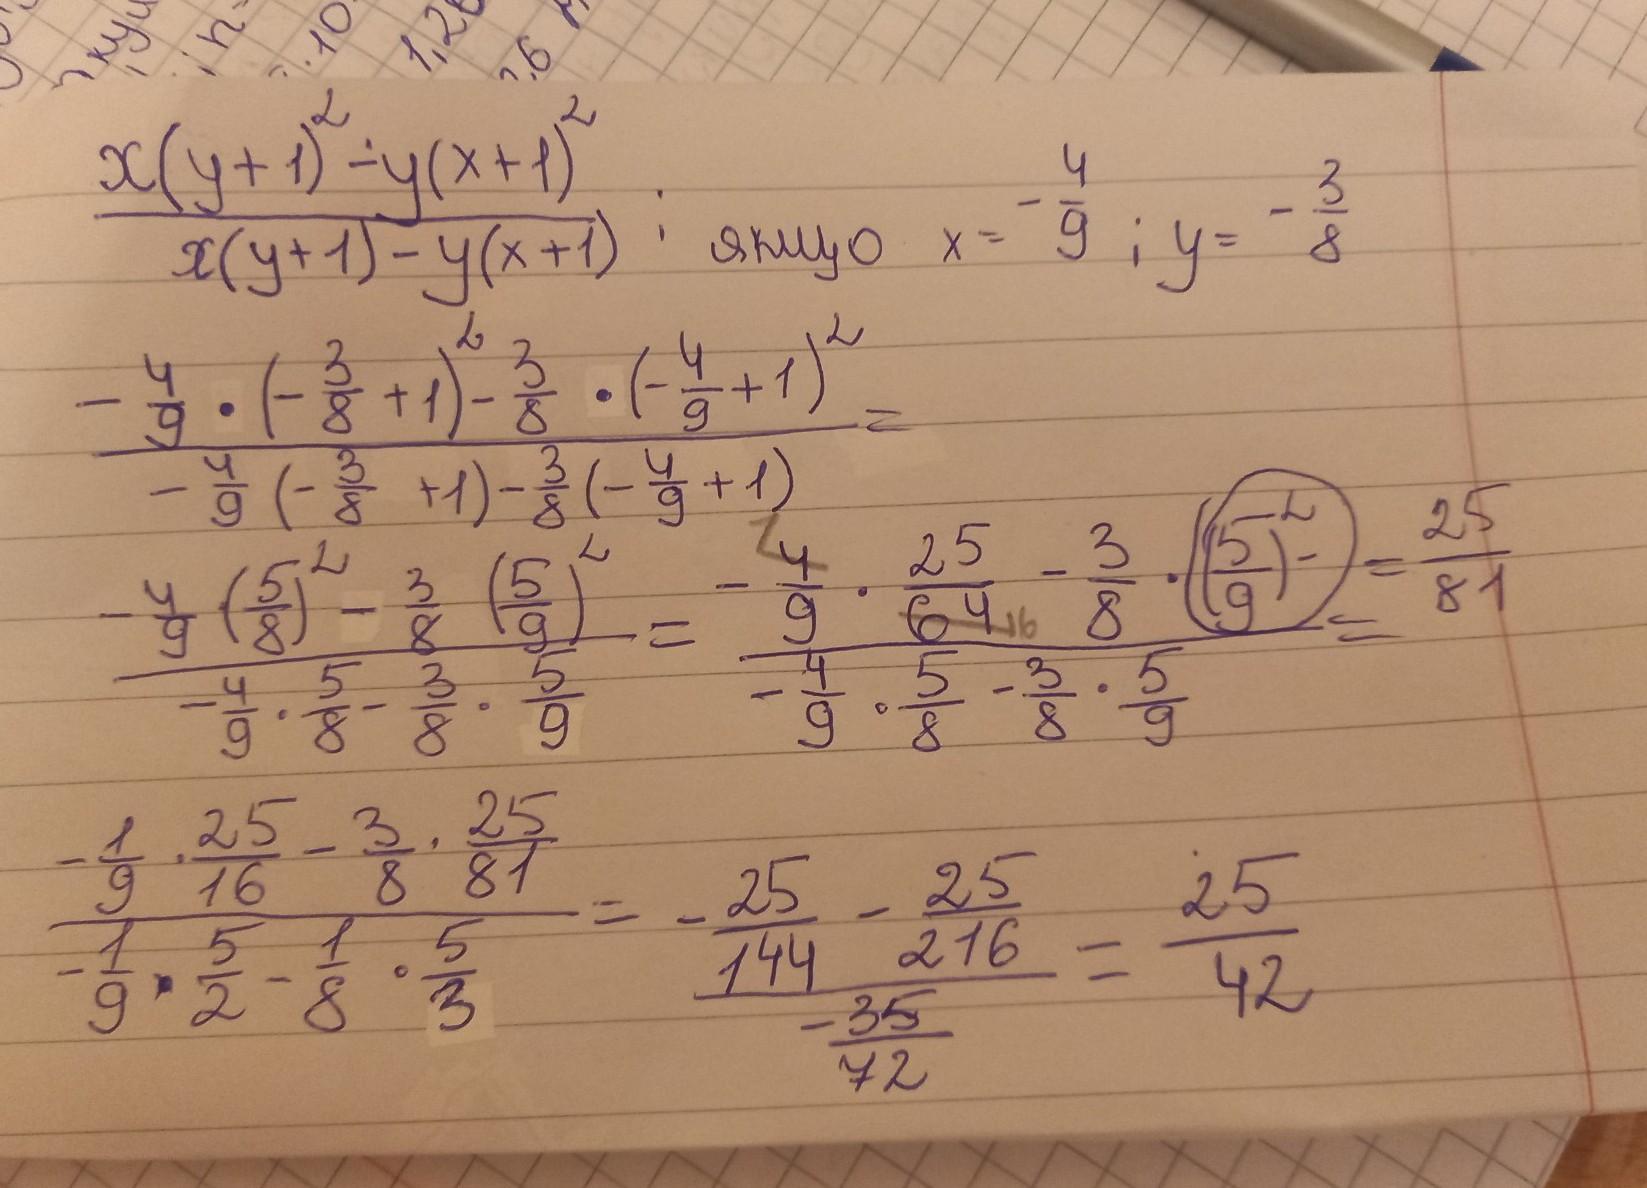 якую
; n=
10
1,26
6
x(y+1)² - y(x+1)² / x(y+1) - y(x+1) ; якщо x = -4/9 ; y = -3/8
-4/9 · (-3/8 + 1)² - 3/8 · (-4/9 + 1)² / -4/9 (-3/8 + 1) - 3/8 (-4/9 + 1) =
-4/9 · (5/8)² - 3/8 (5/9)² / -4/9 · 5/8 - 3/8 · 5/9 = -4/9 · 25/64 16 - 3/8 · ((5/9)² - / -4/9 · 5/8 - 3/8 · 5/9 = = 25/81
-1/9 · 25/16 - 3/8 · 25/81 / -1/9 · 5/2 - 1/8 · 5/3 = -25/144 - 25/216 / -35/72 = 25/42